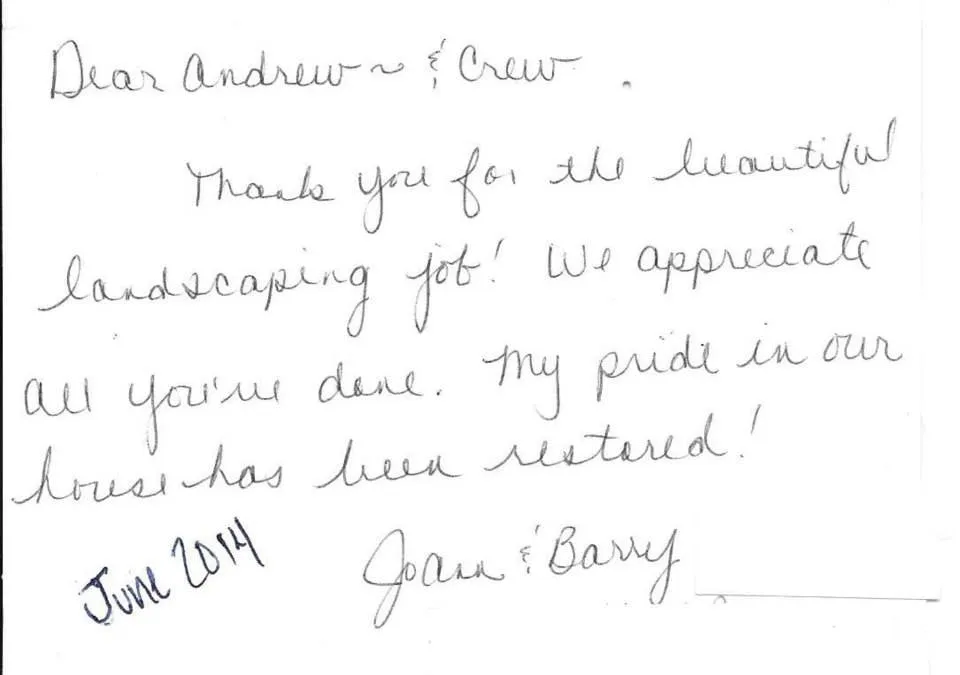 Dear Andrew ~ & Crew
Thank you for the beautiful
landscaping job! We appreciate
all you've done. My pride in our
house has been restored!
June 2014 Joann & Barry